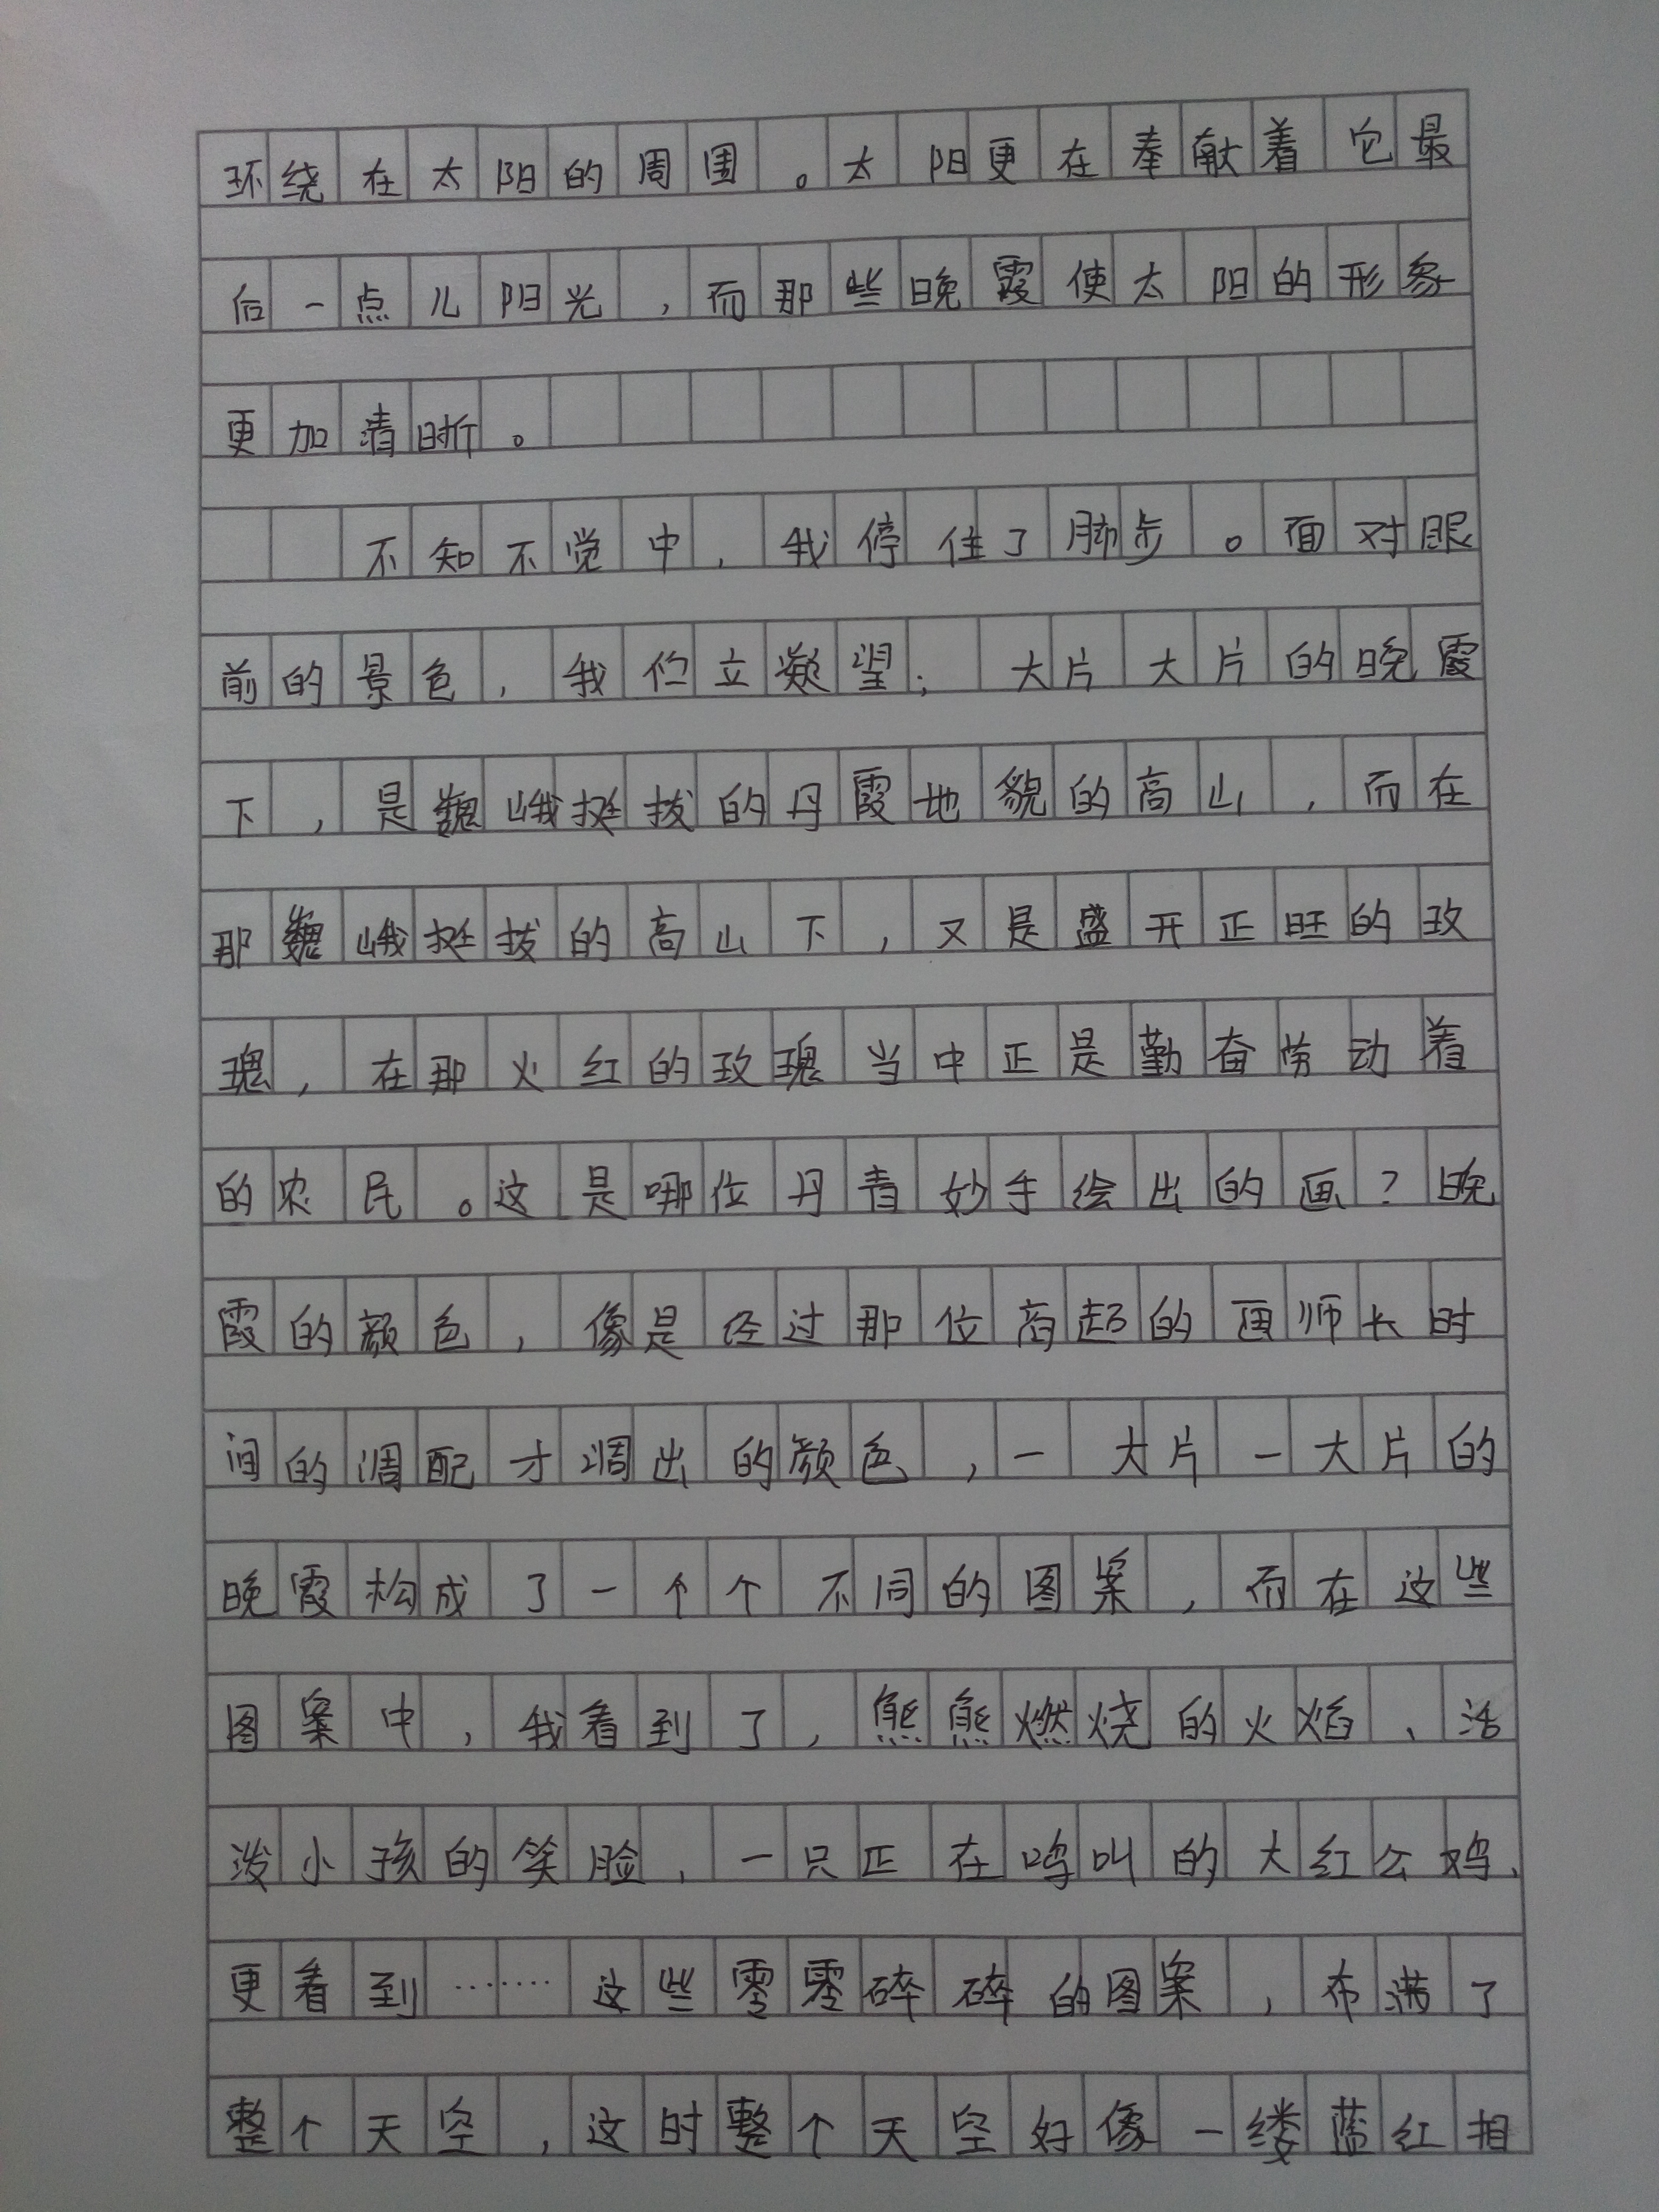 环绕在太阳的周围。太阳更在奉献着它最
后一点儿阳光，而那些晚霞使太阳的形象
更加清晰。
不知不觉中，我停住了脚步。面对眼
前的景色，我伫立凝望；大片大片的晚霞
下，是巍峨挺拔的丹霞地貌的高山，而在
那巍峨挺拔的高山下，又是盛开正旺的玫
瑰，在那火红的玫瑰当中正是勤奋劳动着
的农民。这是哪位丹青妙手绘出的画？晚
霞的颜色，像是经过那位高超的画师长时
间的调配才调出的颜色，一大片一大片的
晚霞构成了一个个不同的图案，而在这些
图案中，我看到了，熊熊燃烧的火焰、活
泼小孩的笑脸，一只正在鸣叫的大红公鸡、
更看到……这些零零碎碎的图案，布满了
整个天空，这时整个天空好像一缕蓝红相